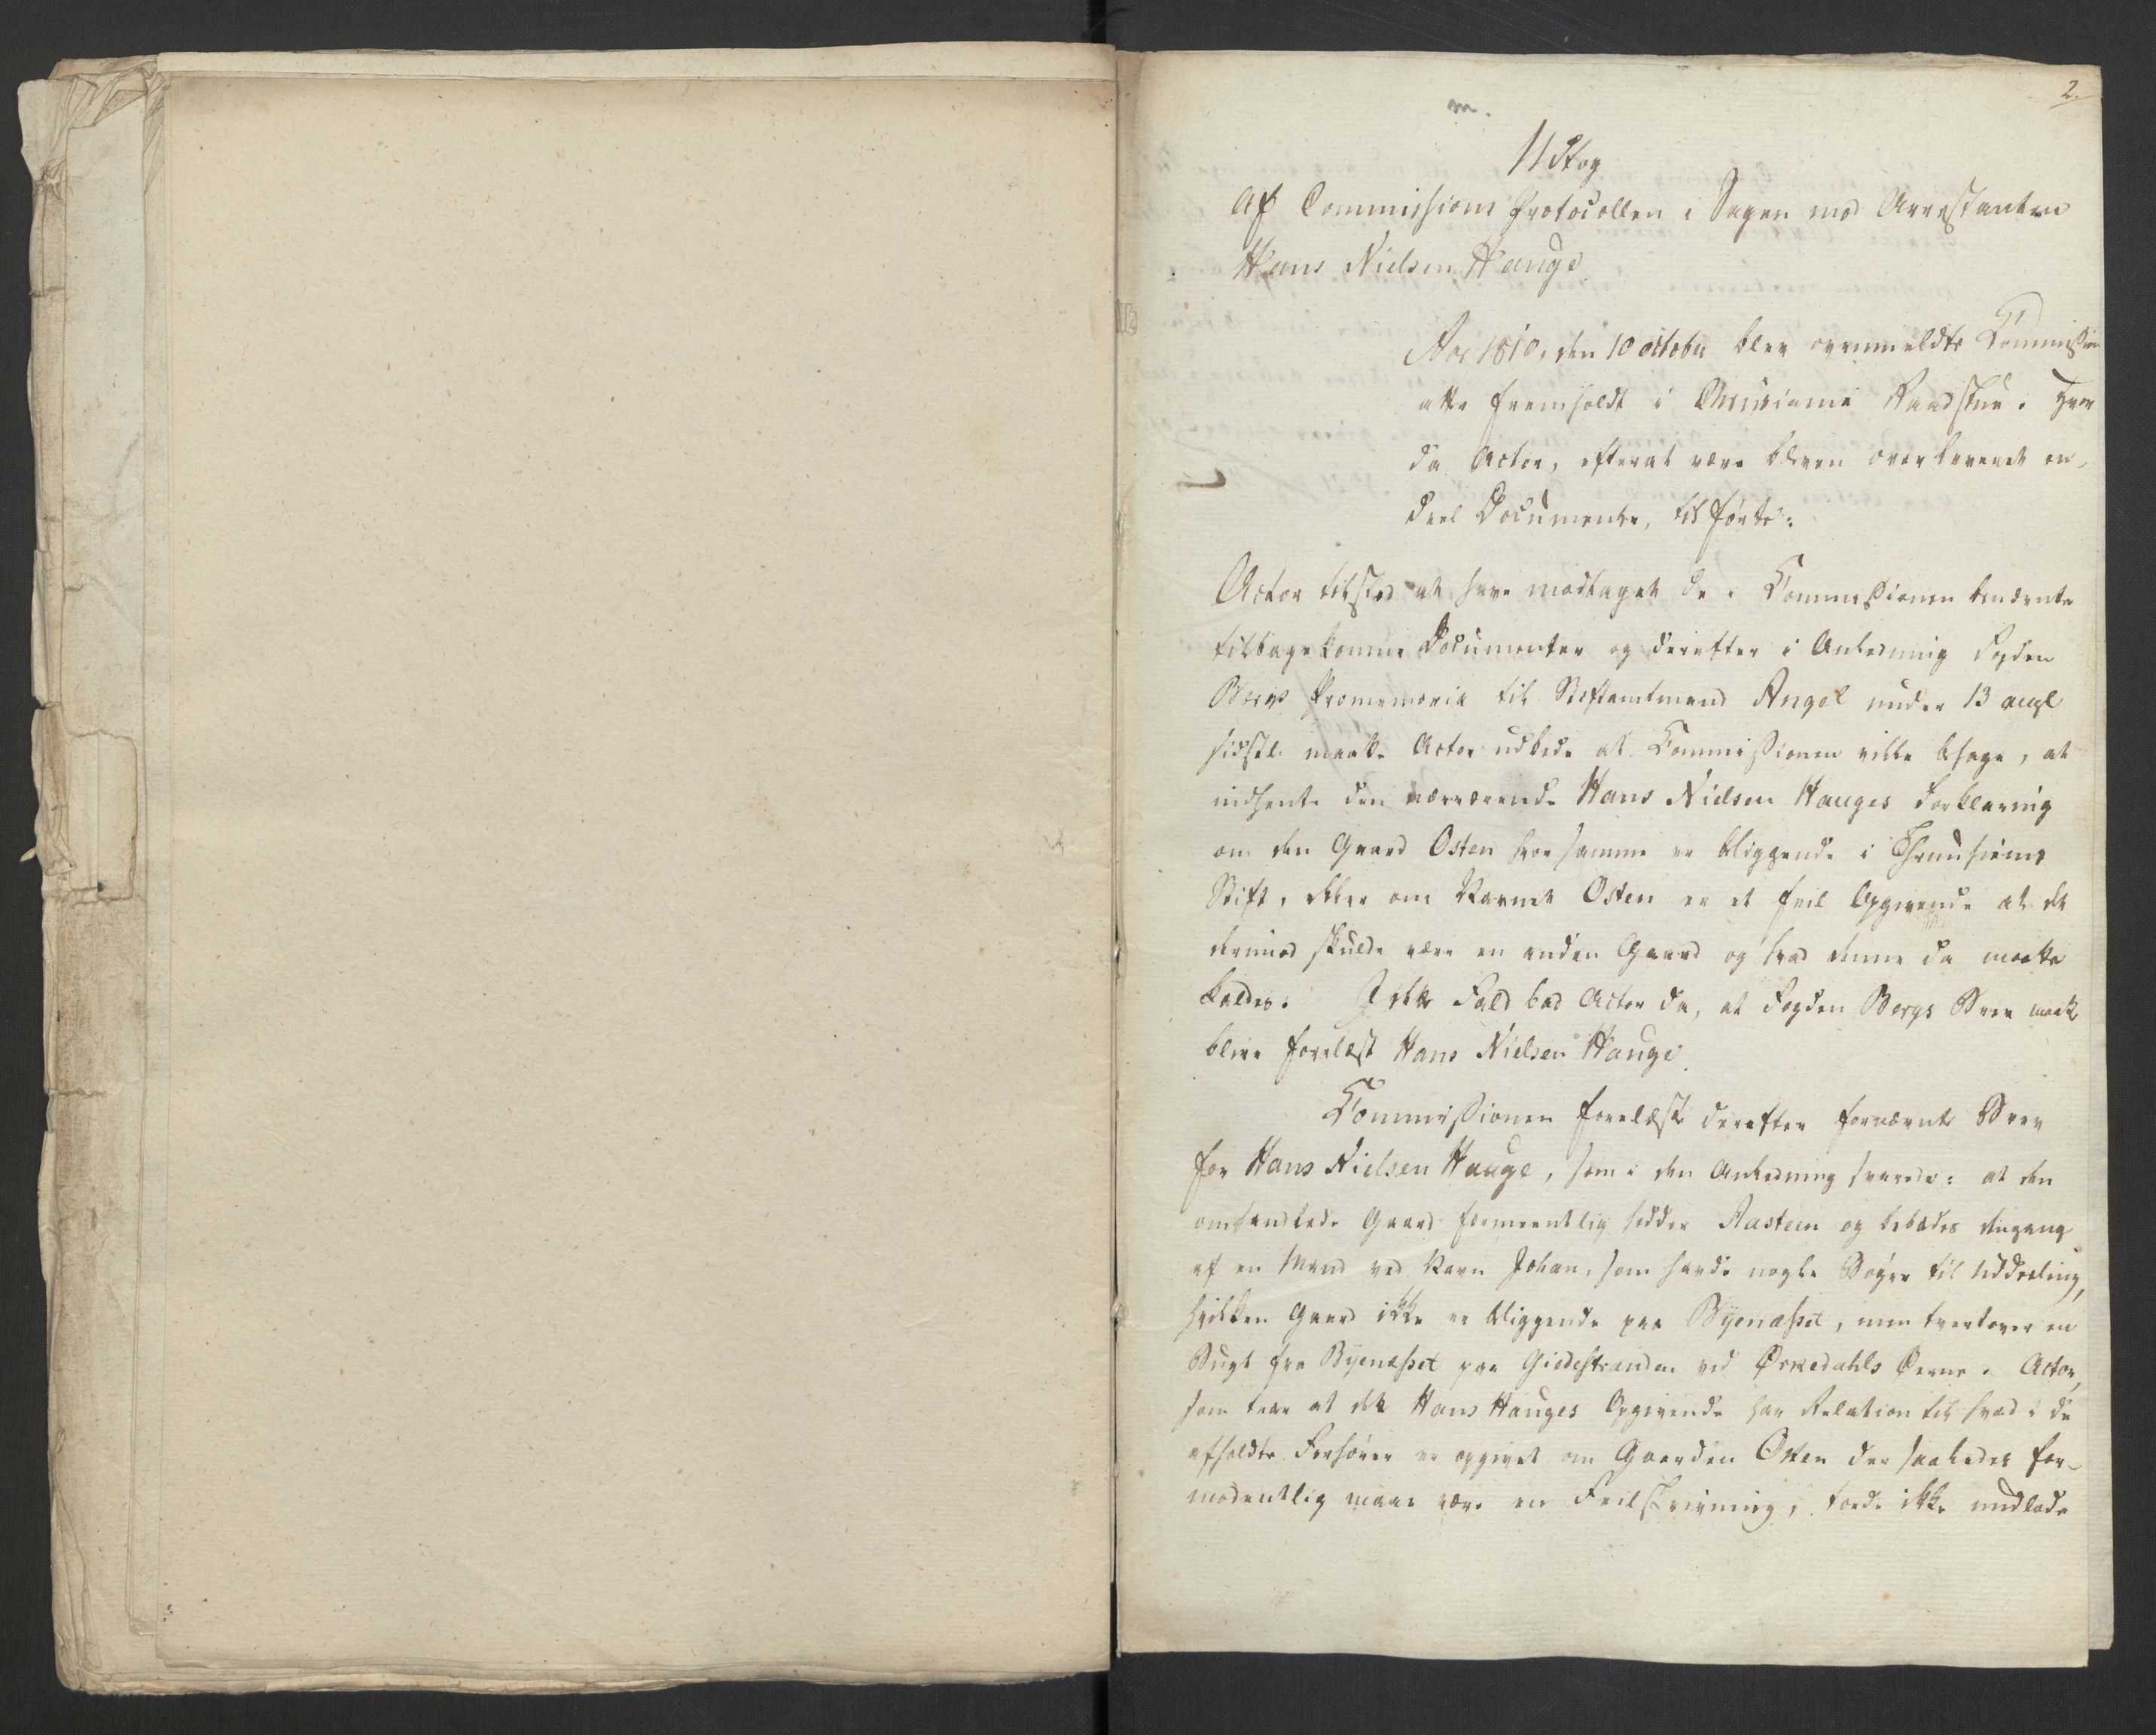 2.
m.
Udtog
Af Commissions Protocollen i Sagen mod Arrestanten
Hans Nielsen Hauge.
Aar 1810, den 10 octobr blev ovenmeldte Commission
atter fremholdt i Christiania Raadstue. Hvor
da Actor, efterat være bleven overleveret en
deel Documenter, tilførte:
Actor tilstod at have modtaget de i Commissionen benævnte
tilbagekomne Documenter og derefter i Anledning Fogden
Bergs Promemoria til Stiftamtmand Angel under 13 augl
sidstl. maatte Actor udbede at Commissionen ville behage, at
indhente den nærværende Hans Nielsen Hauges Forklaring
om den Gaard Osten hvor samme er bliggende i Thrundhiems
Stift, eller om Navnet Osten er et feil Opgivende at det
derimod skulde være en anden Gaard og hvad denne da maatte
kaldes. I dette Fald bad Actor da, at Fogden Bergs Brev maatte
blive forelæst Hans Nielsen Hauge.
Commissionen forelæste derefter fornævnte Brev
for Hans Nielsen Hauge, som i den Anledning svarede: at den
omhandlede Gaard formeentlig hedder Aasteen og beboedes dengang
af en Mand ved Navn Johan, som havde nogle Bøger til Uddeeling,
hvilken Gaard ikke er bliggende paa Byenæsset, men tvertover en
Bugt fra Byenæsset paa Giedestranden ved Ørkedahls Øerne. Actor,
som troer at dette Hans Hauges Opgivende har Relation til hvad i de
afholdte Forhører er opgivet om Gaarden Osten der saaledes for-
modentlig maae være en Feilskrivning, torde ikke undlade